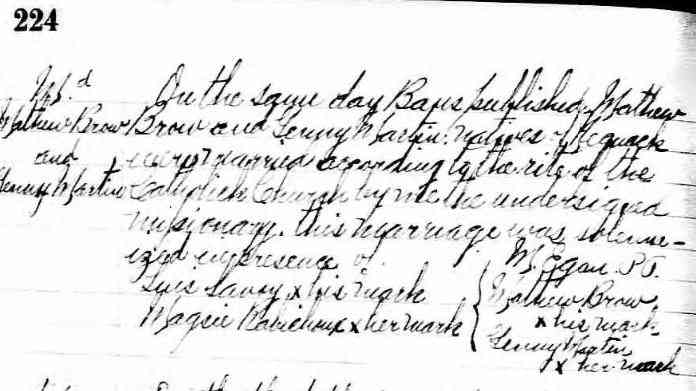 224
Md.
Mathew Brow
and
Jenny Martin
On the same day Bans published, Mathew
Brow and Jenny Martin: natives of
were married according to the rite of the
Catholick Church by me the undersigned
missionary. this marriage was solemn-
ized in presence of
Luis Savoy x his mark
Magee Robichoux x her mark
M. Egan. Pt.
Mathew Brow
x his mark
Jenny Martin
x her mark